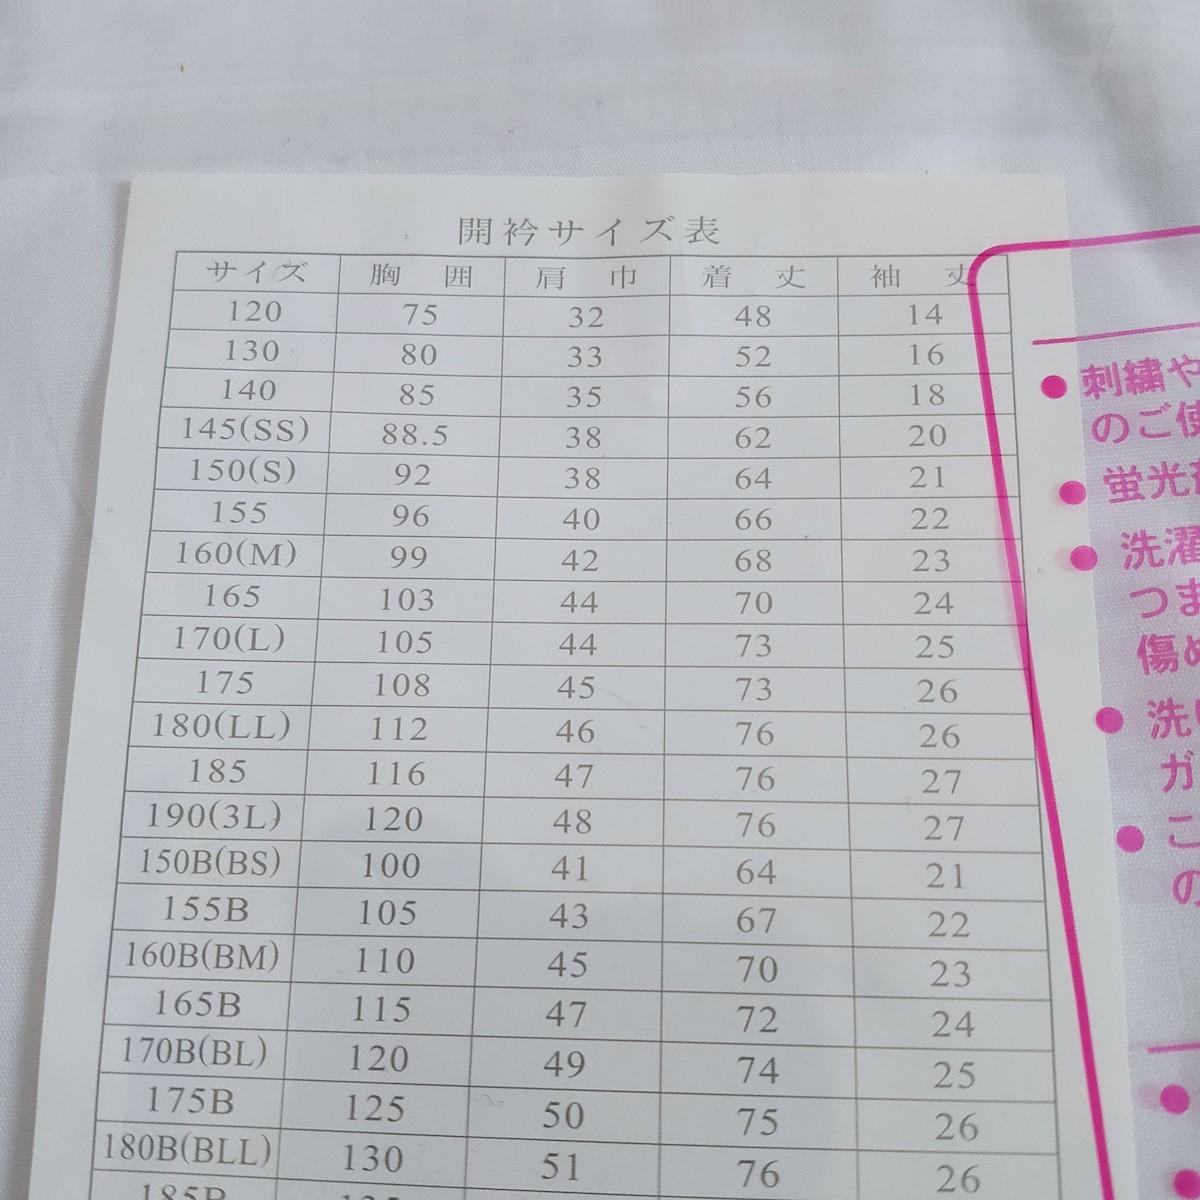 開衿サイズ表
サイズ 胸囲 肩巾 着丈 袖丈
120 75 32 48 14
130 80 33 52 16
140 85 35 56 18
145(SS) 88.5 38 62 20
150(S) 92 38 64 21
155 96 40 66 22
160(M) 99 42 68 23
165 103 44 70 24
170(L) 105 44 73 25
175 108 45 73 26
180(LL) 112 46 76 26
185 116 47 76 27
190(3L) 120 48 76 27
150B(BS) 100 41 64 21
155B 105 43 67 22
160B(BM) 110 45 70 23
165B 115 47 72 24
170B(BL) 120 49 74 25
175B 125 50 75 26
180B(BLL) 130 51 76 26
185B
● 刺繍や
のご使
● 蛍光
● 洗濯
つま
傷め
● 洗い
ガ
● こ
の